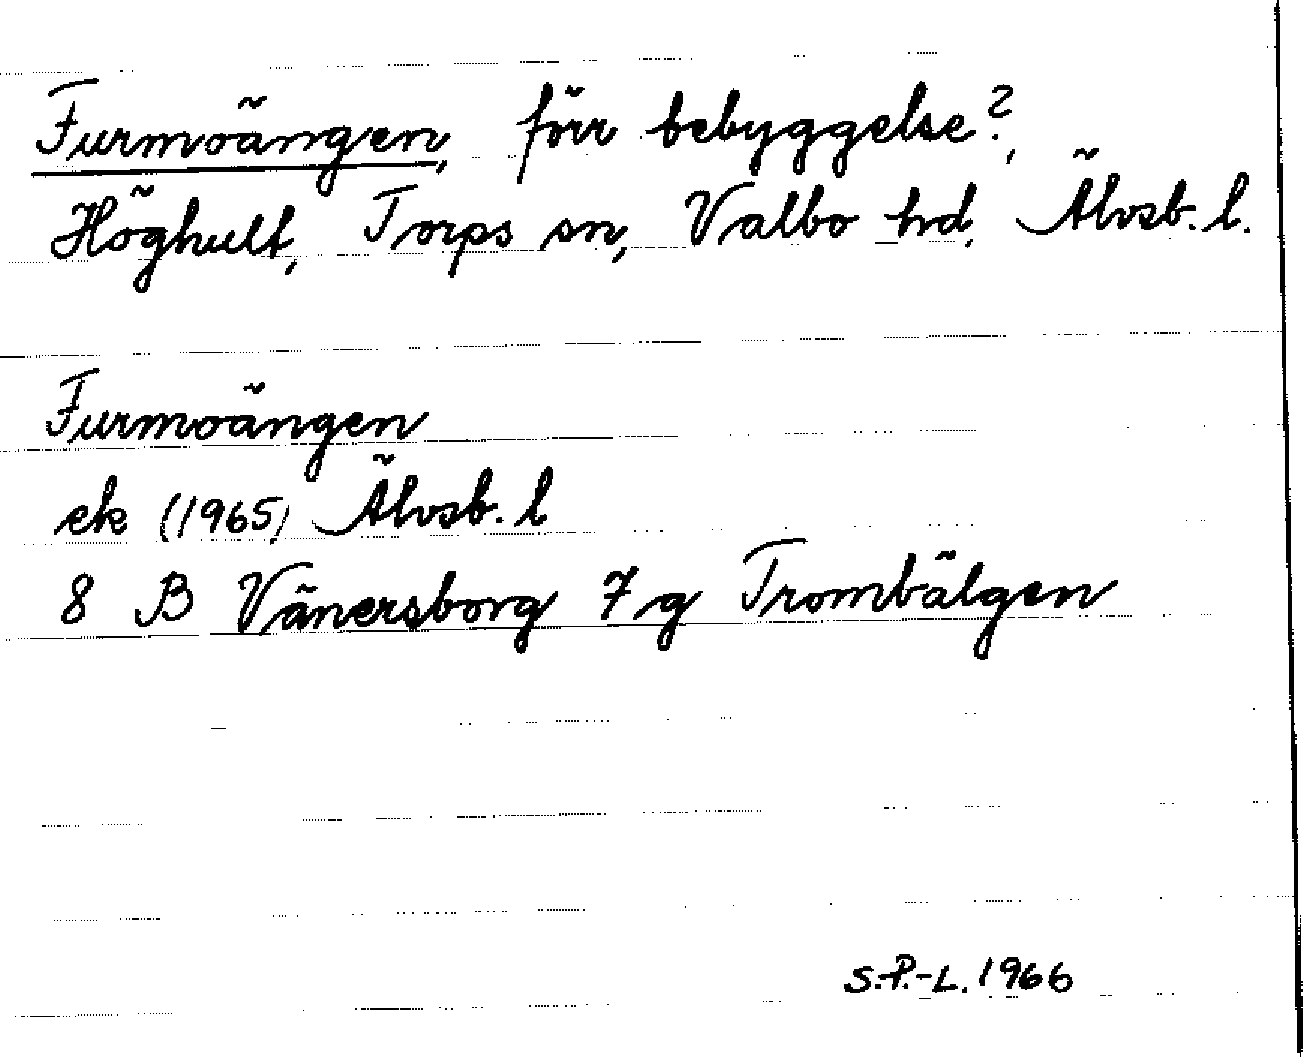 Furmoängen, förr bebyggelse?,
Höghult, Torps sn, Valbo hd, Älvsb. l.
Furmoängen
ek (1965) Älvsb. l
8 B Vänersborg 7 g Trombälgen
S.-P.-L. 1966